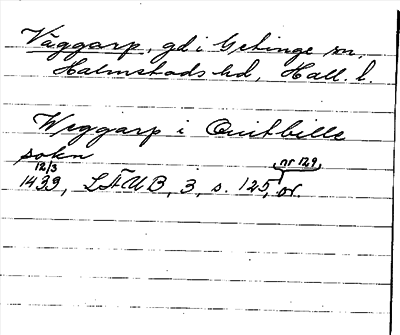 Väggarp, gd i Getinge sn,
Halmstads hd, Hall. l.
Weggarp i Quibille
sokn
12/3
1439, LÄUB, 3, s. 125, nr 129, or.